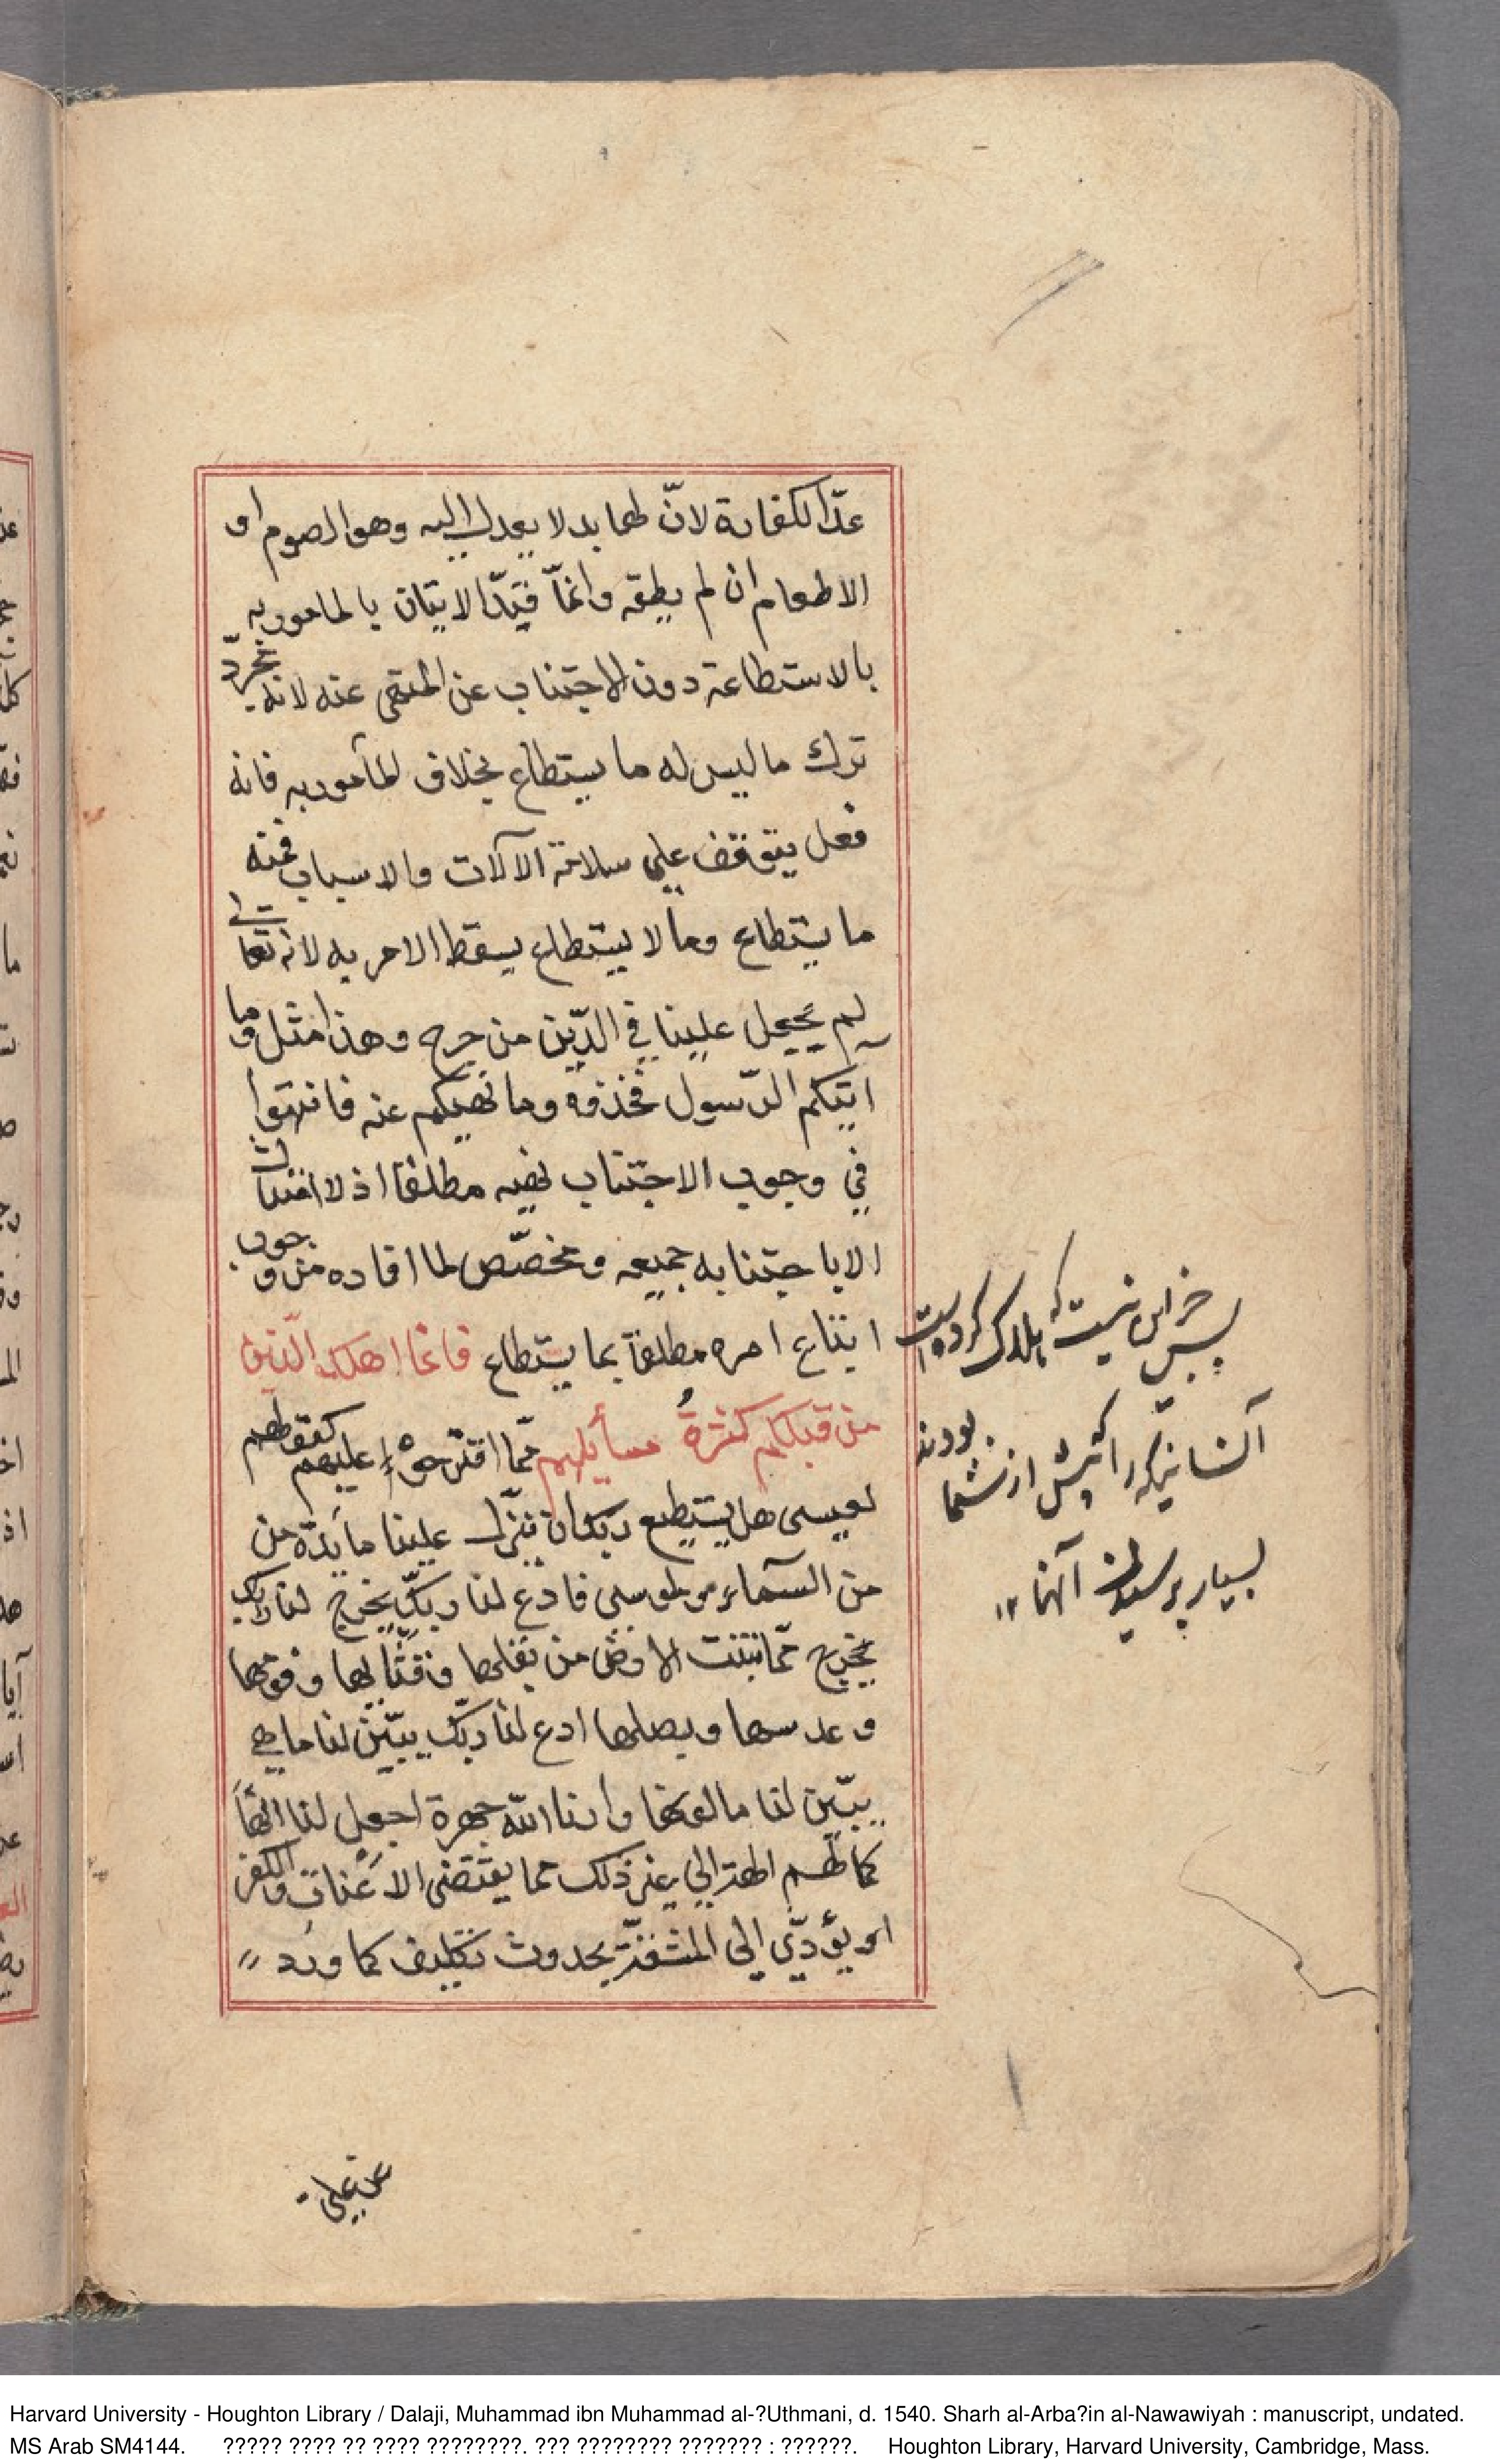 عن الكفارة لانّ لها بدلا يعدل اليه وهو الصوم او
الاطعام ان لم يطقه وانمّا قيّد الاتيان بالمامور به
بالاستطاعة دون الاجتناب عن المنهى عنه لانه مجرّد
ترك ما ليس له ما يستطاع بخلاف المأمور به فانه
فعل يتوقف على سلامة الآلات والاسباب فمنه
ما يستطاع وما لا يستطاع يسقط الامر به لانه تعالى
لم يجعل علينا في الدّين من حرج وهذا مثل وما
اتيكم الرّسول فخذوه وما نهيكم عنه فانتهوا
في وجوب الاجتناب نهيه مطلقا اذ لا امتثال
الا باجتنابه جميعه ومخصّص لما افاده من وجوب
اتباع امره مطلقا بما يستطاع فانما اهلك الّذين
من قبلكم كثرةُ مسأيلهم ممّا اقترحوا عليهم كقولهم
لعيسى هل يستطيع ربك ان ينزّل علينا مآئدة من
من السمآء لموسى فادع لنا ربّك يخرج لنا ربك
يخرج ممّا تنبت الارض من بقلها وقثّآئها وفومها
وعدسها وبصلها ادع لنا ربّك يبيّن لنا ما هي
يبيّن لنا ما لونها وارنا الله جهرة اجعل لنا الهًا
كما لهم الهة الي غير ذلك مما يقتضى الاعنات والكفر
او يؤدّي الى المشقة بحدوث تكليف كما ورد
پس جز اين نيست كه هلاك كرده است
آنسانيكه را كه پيش از شما بودند
بسيار پرسيدن آنها ١٢
عن على